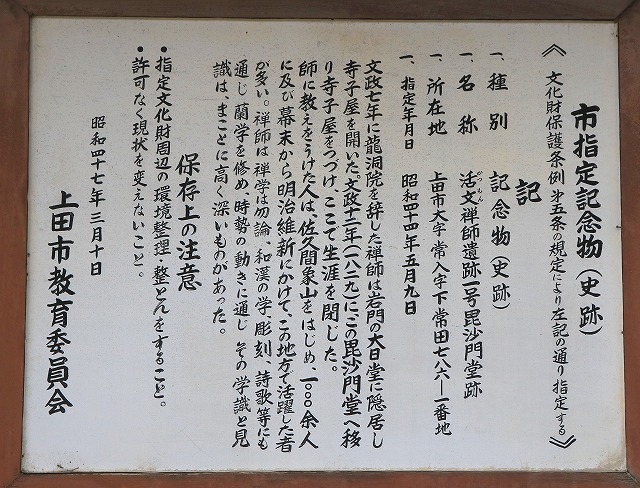 市指定記念物（史跡）
《文化財保護条例 第五条の規定により左記の通り指定する》
記
一、種別 記念物（史跡）
一、名称 活文禅師遺跡一号毘沙門堂跡
かつもん
一、所在地 上田市大字常入字下常田七八六ー一番地
一、指定年月日 昭和四十四年五月九日
文政七年に龍洞院を辞した禅師は岩門の大日堂に隠居し
寺子屋を開いた。文政十二年（一八二九）にこの毘沙門堂へ移
り寺子屋をつづけ、ここで生涯を閉じた。
師に教えをうけた人は、佐久間象山をはじめ、一〇〇〇余人
に及び幕末から明治維新にかけて、この地方で活躍した者
が多い。禅師は禅学は勿論、和漢の学、彫刻、詩歌等にも
通じ 蘭学を修め、時勢の動きに通じ その学識と見
識は、まことに高く深いものがあった。
保存上の注意
・指定文化財周辺の環境整理・整とんをすること。
・許可なく現状を変えないこと。
昭和四十七年三月十日
上田市教育委員会